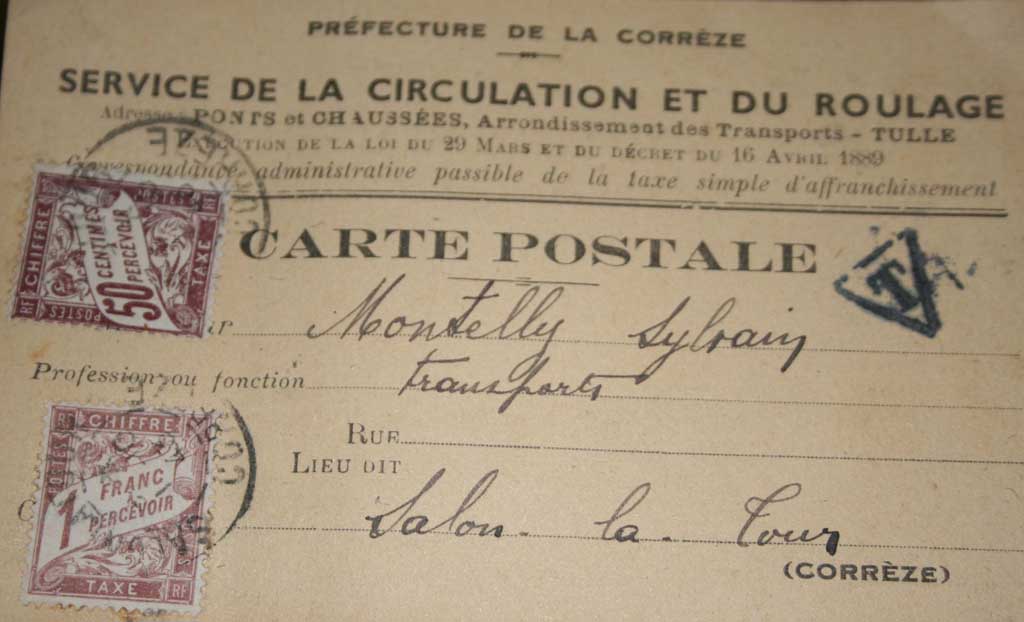 PRÉFECTURE DE LA CORRÈZE
SERVICE DE LA CIRCULATION ET DU ROULAGE
Adresse : PONTS et CHAUSSÉES, Arrondissement des Transports - TULLE
EXÉCUTION DE LA LOI DU 29 MARS ET DU DÉCRET DU 16 AVRIL 1889
Correspondance administrative passible de la taxe simple d'affranchissement
CARTE POSTALE
T
CHIFFRE
POSTES
TAXE
RF
50 CENTIMES
PERCEVOIR
POSTES
Montelly Sylvain
Profession ou fonction Transports
RUE
LIEU DIT
RF
CHIFFRE
POSTES
1 FRANC
PERCEVOIR
TAXE
RF
Salon-la-Tour
(CORRÈZE)